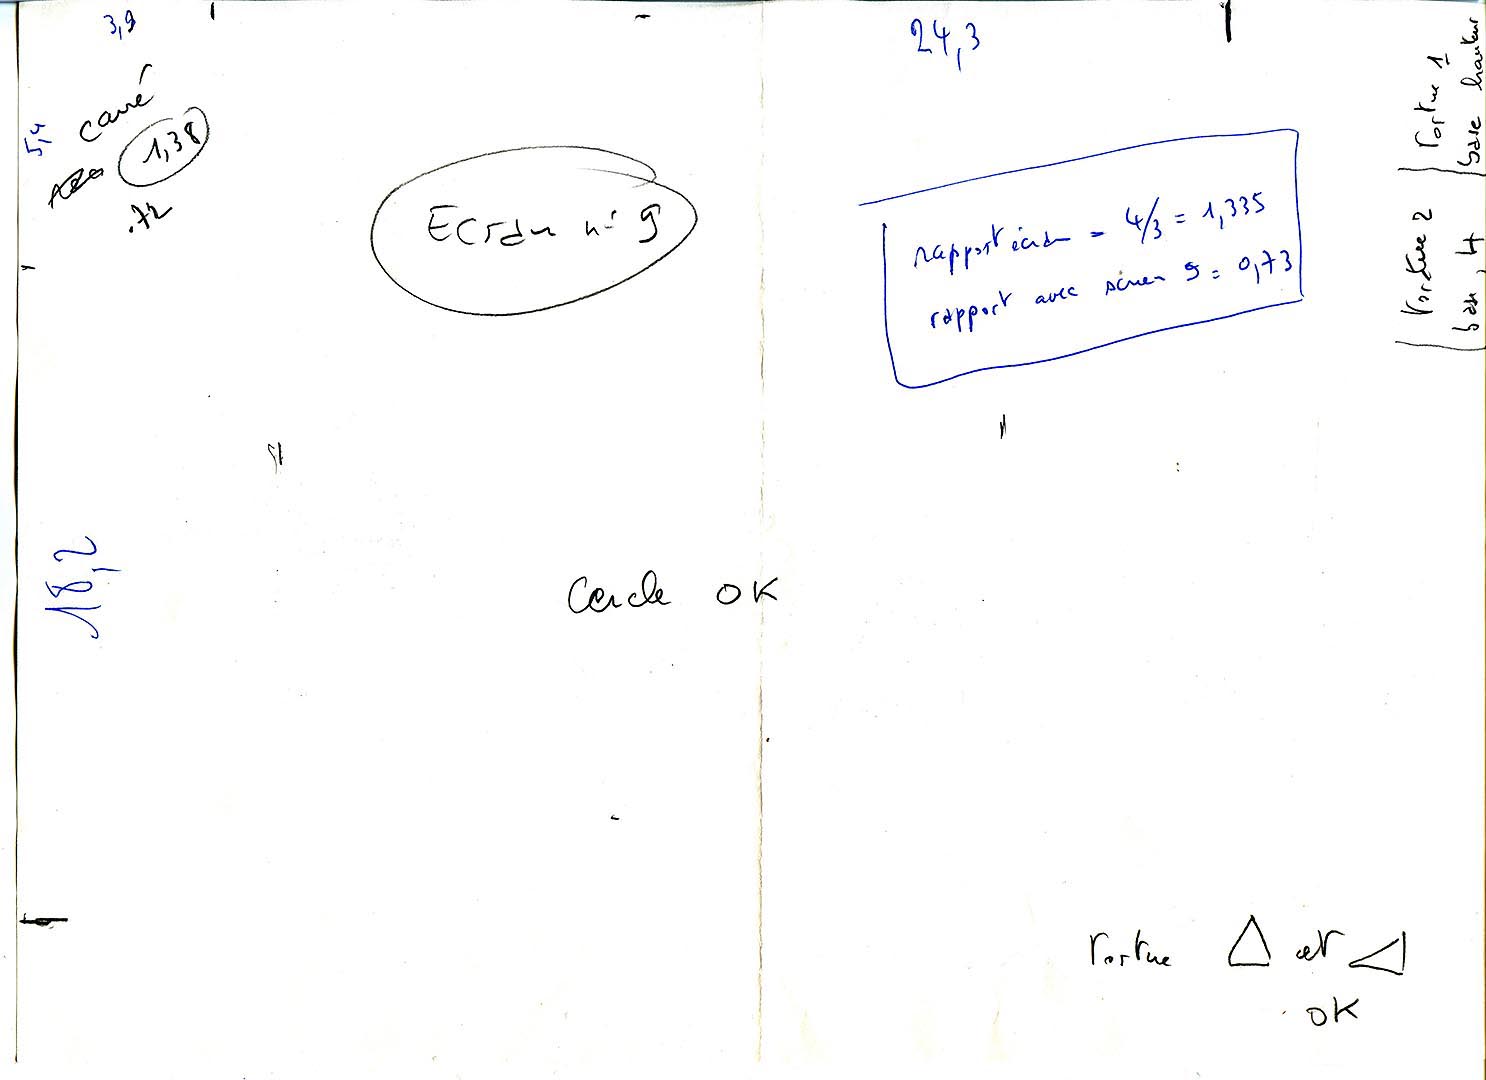 3,9
24,3
carré
5,4
1,38
.72
Ecran n° 9
rapport écran = 4/3 = 1,335
rapport avec screen 9 = 0,73
Tortue 1
base hauteur
Tortue 2
base, H
18,2
Cercle OK
Tortue △ et
OK